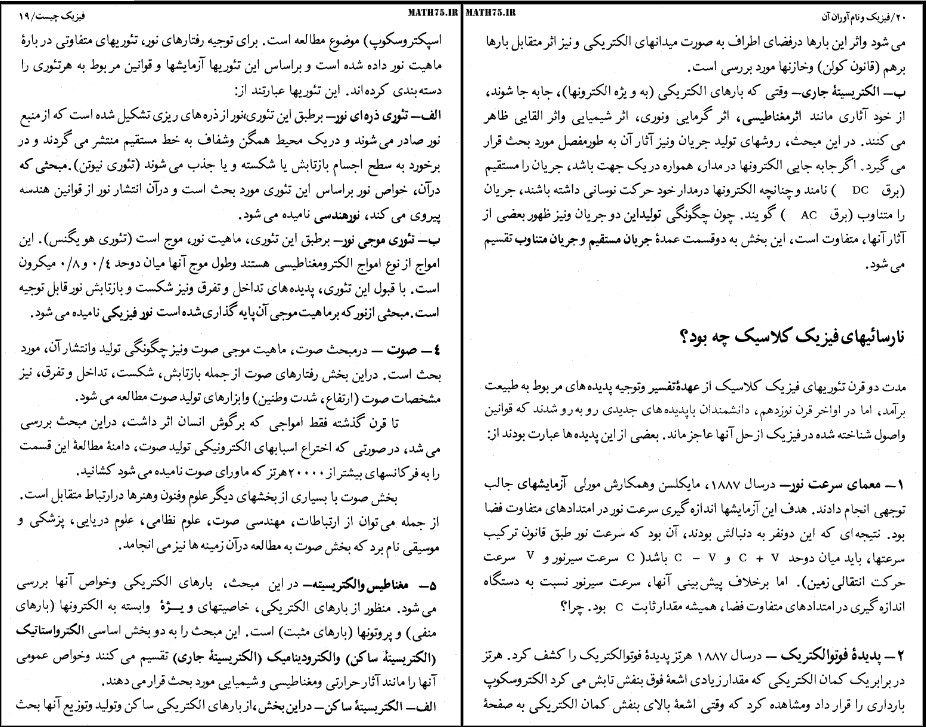 فیزیک چیست/۱۹
MATH75.IR
اسپکتروسکوپ) موضوع مطالعه است. برای توجیه رفتارهای نور، تئوریهای متفاوتی در بارهٔ
ماهیت نور داده شده است و براساس این تئوریها آزمایشها و قوانین مربوط به هرتئوری را
دسته بندی کرده اند. این تئوریها عبارتند از:
الف– تئوری ذره ای نور– برطبق این تئوری،نور از ذره های ریزی تشکیل شده است که از منبع
نور صادر می شوند و دریک محیط همگن وشفاف به خط مستقیم منتشر می گردند و در
برخورد به سطح اجسام بازتابش یا شکسته و یا جذب می شوند (تئوری نیوتن). مبحثی که
درآن، خواص نور براساس این تئوری مورد بحث است و درآن انتشار نور از قوانین هندسه
پیروی می کند، نورهندسی نامیده می شود.
ب– تئوری موجی نور– برطبق این تئوری، ماهیت نور، موج است (تئوری هویگنس). این
امواج از نوع امواج الکترومغناطیسی هستند وطول موج آنها میان دوحد ۰/٤ و ۰/۸ میکرون
است. با قبول این تئوری، پدیده های تداخل و تفرق ونیز شکست و بازتابش نور قابل توجیه
است. مبحثی ازنور که بر ماهیت موجی آن پایه گذاری شده است نور فیزیکی نامیده می شود.
٤– صوت – درمبحث صوت، ماهیت موجی صوت ونیز چگونگی تولید وانتشار آن، مورد
بحث است. دراین بخش رفتارهای صوت از جمله بازتابش، شکست، تداخل و تفرق، نیز
مشخصات صوت (ارتفاع، شدت وطنین) وابزارهای تولید صوت مطالعه می شود.
تا قرن گذشته فقط امواجی که برگوش انسان اثر داشت، دراین مبحث بررسی
می شد، در صورتی که اختراع اسبابهای الکترونیکی تولید صوت، دامنهٔ مطالعهٔ این قسمت
را به فرکانسهای بیشتر از ۲۰۰۰۰ هرتز که ماورای صوت نامیده می شود کشانید.
بخش صوت با بسیاری از بخشهای دیگر علوم وفنون وهنرها درارتباط متقابل است.
از جمله می توان از ارتباطات، مهندسی صوت، علوم نظامی، علوم دریایی، پزشکی و
موسیقی نام برد که بخش صوت به مطالعه درآن زمینه ها نیز می انجامد.
۵– مغناطیس والکتریسیته– در این مبحث، بارهای الکتریکی وخواص آنها بررسی
می شود. منظور از بارهای الکتریکی، خاصیتهای ویــژهٔ وابسته به الکترونها (بارهای
منفی) و پروتونها (بارهای مثبت) است. این مبحث را به دو بخش اساسی الکترواستاتیک
(الکتریسیتهٔ ساکن) والکترودینامیک (الکتریسیتهٔ جاری) تقسیم می کنند وخواص عمومی
آنها را مانند آثار حرارتی ومغناطیسی و شیمیایی مورد بحث قرار می دهند.
الف– الکتریسیتهٔ ساکن– دراین بخش،ازبارهای الکتریکی ساکن وتولید وتوزیع آنها بحث
MATH75.IR
۲۰/فیزیک ونام آوران آن
می شود واثر این بارها درفضای اطراف به صورت میدانهای الکتریکی ونیز اثر متقابل بارها
برهم (قانون کولن) وخازنها مورد بررسی است.
ب– الکتریسیتهٔ جاری– وقتی که بارهای الکتریکی (به ویژه الکترونها)، جابه جا شوند،
از خود آثاری مانند اثرمغناطیسی، اثر گرمایی ونوری، اثر شیمیایی واثر القایی ظاهر
می کنند. در این مبحث، روشهای تولید جریان ونیز آثار آن به طورمفصل مورد بحث قرار
می گیرد. اگر جابه جایی الکترونها درمدار، همواره دریک جهت باشد، جریان را مستقیم
(برق DC ) نامند وچنانچه الکترونها درمدار خود حرکت نوسانی داشته باشند، جریان
را متناوب (برق AC ) گویند. چون چگونگی تولیداین دو جریان ونیز ظهور بعضی از
آثار آنها، متفاوت است، این بخش به دوقسمت عمدهٔ جریان مستقیم و جریان متناوب تقسیم
می شود.
نارسائیهای فیزیک کلاسیک چه بود؟
مدت دو قرن تئوریهای فیزیک کلاسیک از عهدهٔ تفسیر وتوجیه پدیده های مربوط به طبیعت
برآمد، اما در اواخر قرن نوزدهم، دانشمندان باپدیده های جدیدی رو به رو شدند که قوانین
واصول شناخته شده درفیزیک از حل آنها عاجز ماند. بعضی از این پدیده ها عبارت بودند از:
۱– معمای سرعت نور– درسال ۱۸۸۷، مایکلسن وهمکارش مورلی آزمایشهای جالب
توجهی انجام دادند. هدف این آزمایشها اندازه گیری سرعت نور در امتدادهای متفاوت فضا
بود. نتیجه ای که این دونفر به دنبالش بودند، آن بود که سرعت نور طبق قانون ترکیب
سرعتها، باید میان دوحد C + V و C – V باشد( C سرعت سیرنور و V سرعت
حرکت انتقالی زمین). اما برخلاف پیش بینی آنها، سرعت سیرنور نسبت به دستگاه
اندازه گیری در امتدادهای متفاوت فضا، همیشه مقدار ثابت C بود. چرا؟
۲– پدیدهٔ فوتوالکتریک – درسال ۱۸۸۷ هرتز پدیدهٔ فوتوالکتریک را کشف کرد. هرتز
در برابر یک کمان الکتریکی که مقدار زیادی اشعهٔ فوق بنفش تابش می کرد الکتروسکوپ
بارداری را قرار داد ومشاهده کرد که وقتی اشعهٔ بالای بنفش کمان الکتریکی به صفحهٔ